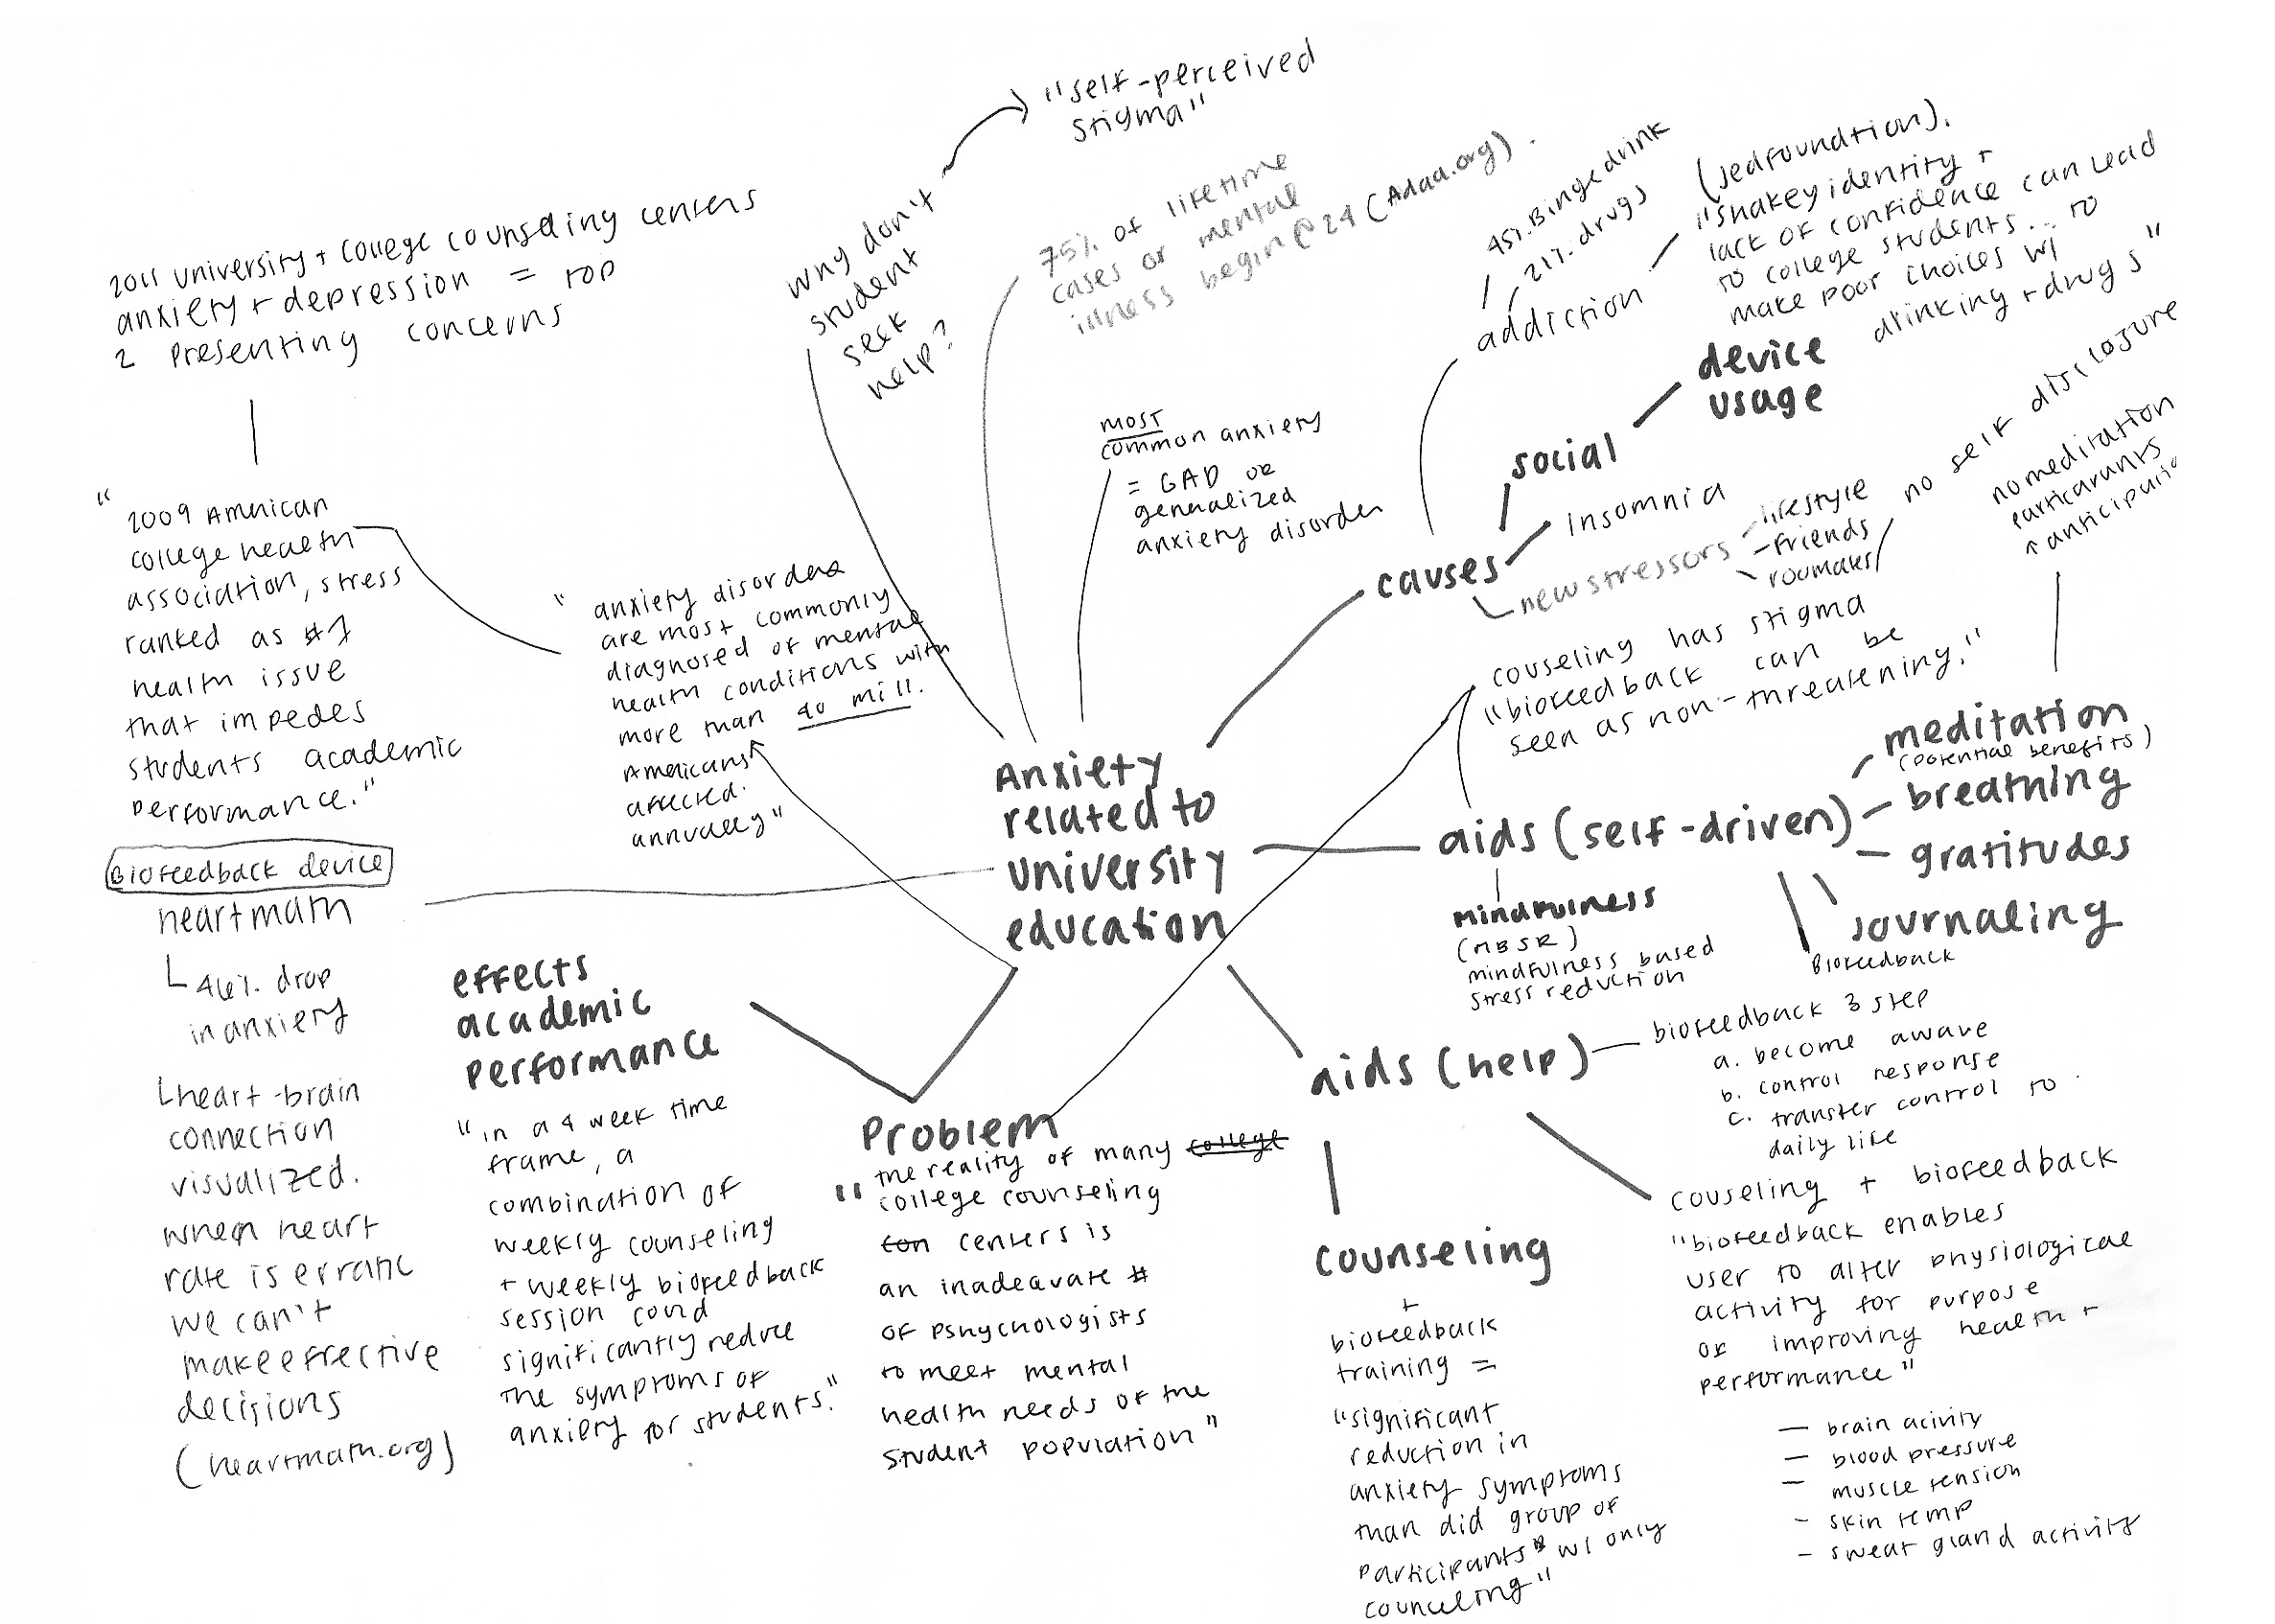 "self-perceived
stigma"
why don't
student
seek
help?
75% of lifetime
cases of mental
illness begin @ 24 (Adaa.org).
45% Binge drink
21% drugs
addiction
(jedfoundtion).
"shakey identity +
lack of confidence can lead
to college students... to
make poor choices w/
drinking + drugs"
2011 university + college counseling centers
anxiety + depression = top
2 presenting concerns
"2009 American
college health
association, stress
ranked as #1
health issue
that impedes
students academic
performance."
"anxiety disorders
are most commonly
diagnosed of mental
health conditions with
more than 40 mill.
Americans
affected.
annually"
most
common anxiety
= GAD or
generalized
anxiety disorder
causes
social
device
usage
insomnia
new stressors
lifestyle
-friends
roomates
no self disclosure
no meditation
↑
couseling has stigma
"biofeedback can be
seen as non-threatening."
Anxiety
related to
university
education
aids (self-driven)
meditation
(potential benefits)
breathing
gratitudes
journaling
Biofeedback
mindfulness
(MBSR)
mindfulness based
stress reduction
Biofeedback device
heartmath
46% drop
in anxiety
heart-brain
connection
visualized.
when heart
rate is erratic
we can't
make effective
decisions
(heartmath.org)
effects
academic
performance
"in a 4 week time
frame, a
combination of
weekly counseling
+ weekly biofeedback
session could
significantly reduce
the symptoms of
anxiety for students."
Problem
"the reality of many college
college counseling
con centers is
an inadequate #
of pshychologists
to meet mental
health needs of the
student population"
aids (help)
biofeedback 3 step
a. become aware
b. control response
c. transfer control to
daily life
counseling
+
biofeedback
training =
"significant
reduction in
anxiety symptoms
than did group of
participants w/ only
counceling"
couseling + biofeedback
"biofeedback enables
user to alter physiological
activity for purpose
of improving health +
performance"
— brain acivity
— blood pressure
— muscle tension
- skin temp
- sweat gland activity